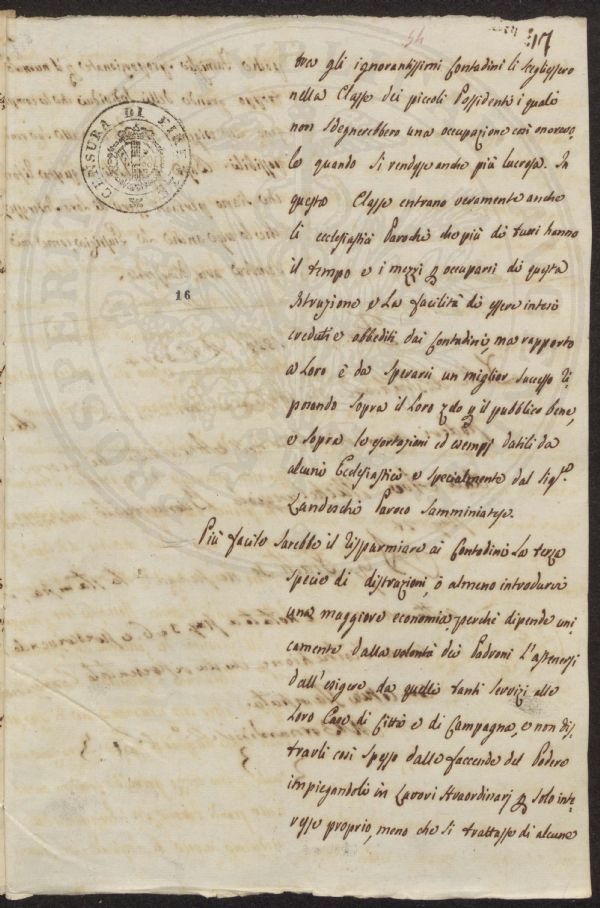 54
17
tra gli ignorantissimi Contadini li scegliessero
nella Classe dei piccoli Possidenti i quali
non sdegnerebbero una occupazione così onorevo-
le quando si rendesse anche più lucrosa. In
questa Classe entrano veramente anche
li ecclesiastici Parochi che più di tutti hanno
il tempo e i mezzi p occuparsi di questa
Istruzione e La facilità di essere intesi
creduti e obbediti dai Contadini, ma rapporto
a Loro è da sperarsi un miglior successo ri-
posando sopra il Loro zelo p il pubblico bene,
e sopra le esortazioni ed esempj datili da
alcuni Ecclesiastici e specialmente dal Sigr.
Landeschi Paroco Samminiatese.
Più facile sarebbe il risparmiare ai Contadini La terza
specie di distrazioni, o almeno introdurvi
una maggiore economia, perchè dipende uni-
camente dalla volontà dei Padroni L'astenersi
dall'esigere da quelli tanti servizi alle
Loro Case di Città e di Campagna, e non dis-
trarli così spesso dalle faccende del Podere
impiegandoli in Lavori straordinarj p solo inte-
resse proprio, meno che si trattasse di alcune
CENSURA DI FIRENZE
16